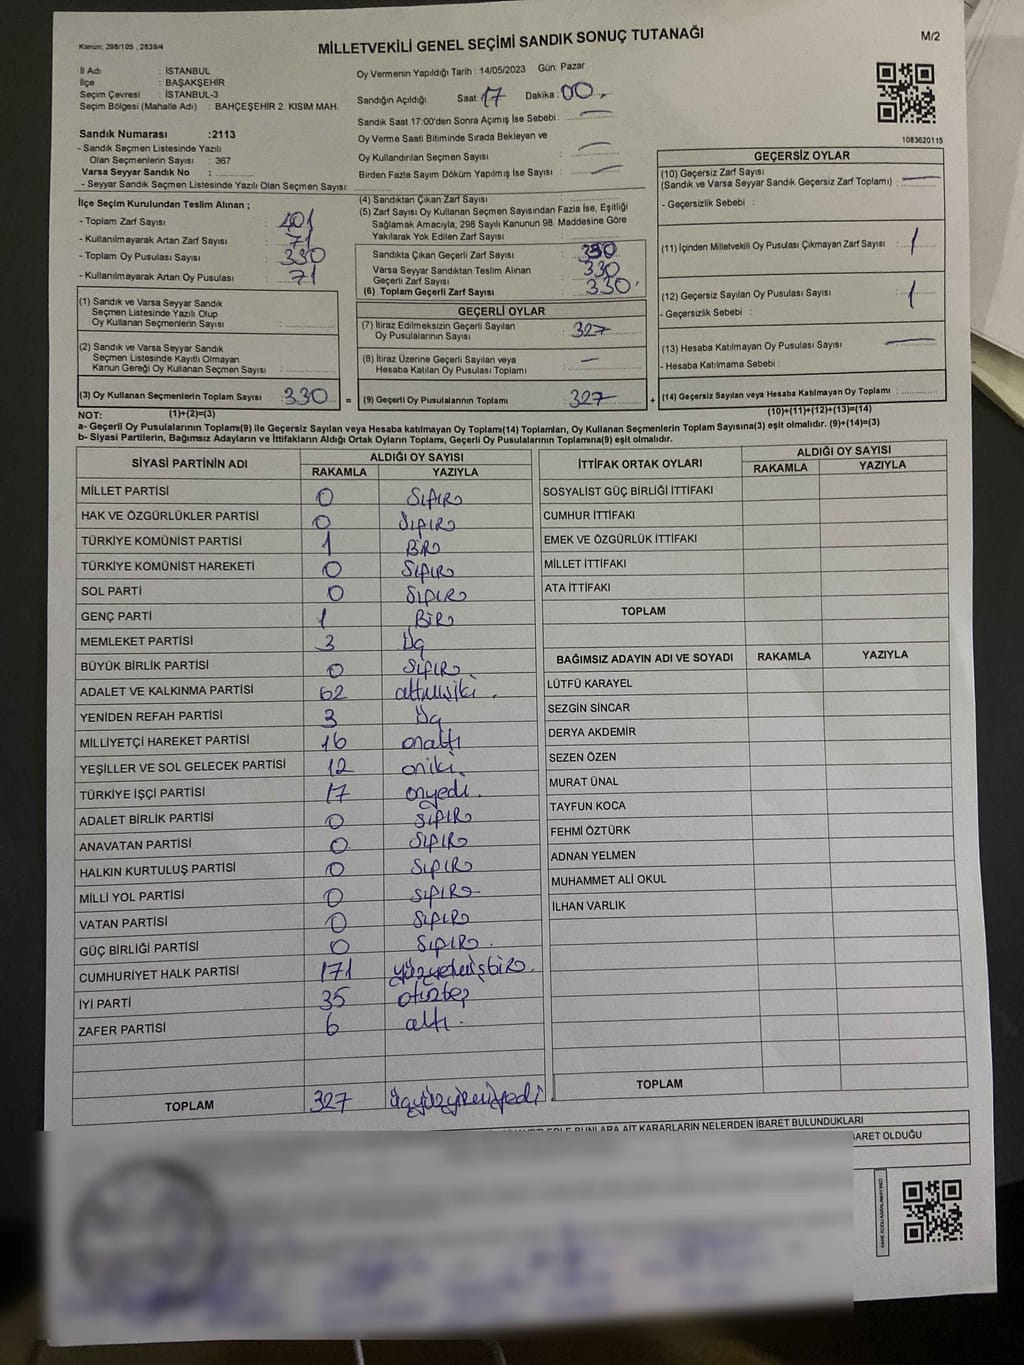 Kanun: 298/105 , 2839/4
MİLLETVEKİLİ GENEL SEÇİMİ SANDIK SONUÇ TUTANAĞI
M/2
İl Adı : İSTANBUL
İlçe : BAŞAKŞEHİR
Seçim Çevresi : İSTANBUL-3
Seçim Bölgesi (Mahalle Adı) : BAHÇEŞEHİR 2. KISIM MAH.
Sandık Numarası :2113
- Sandık Seçmen Listesinde Yazılı
Olan Seçmenlerin Sayısı : 367
Varsa Seyyar Sandık No :
- Seyyar Sandık Seçmen Listesinde Yazılı Olan Seçmen Sayısı:
Oy Vermenin Yapıldığı Tarih : 14/05/2023 Gün: Pazar
Sandığın Açıldığı Saat: 17 Dakika : 00
Sandık Saat 17:00'den Sonra Açımış İse Sebebi : —
Oy Verme Saati Bitiminde Sırada Bekleyen ve
Oy Kullandırılan Seçmen Sayısı : —
Birden Fazla Sayım Döküm Yapılmış İse Sayısı : —
1083620115
İlçe Seçim Kurulundan Teslim Alınan ;
- Toplam Zarf Sayısı : 401
- Kullanılmayarak Artan Zarf Sayısı : 71
- Toplam Oy Pusulası Sayısı : 330
- Kullanılmayarak Artan Oy Pusulası : 71
(1) Sandık ve Varsa Seyyar Sandık
Seçmen Listesinde Yazılı Olup
Oy Kullanan Seçmenlerin Sayısı :
(2) Sandık ve Varsa Seyyar Sandık
Seçmen Listesinde Kayıtlı Olmayan
Kanun Gereği Oy Kullanan Seçmen Sayısı :
(3) Oy Kullanan Seçmenlerin Toplam Sayısı : 330 =
(4) Sandıktan Çıkan Zarf Sayısı :
(5) Zarf Sayısı Oy Kullanan Seçmen Sayısından Fazla İse, Eşitliği
Sağlamak Amacıyla; 298 Sayılı Kanunun 98. Maddesine Göre
Yakılarak Yok Edilen Zarf Sayısı :
Sandıkta Çıkan Geçerli Zarf Sayısı : 330
Varsa Seyyar Sandıktan Teslim Alınan
Geçerli Zarf Sayısı : 330
(6) Toplam Geçerli Zarf Sayısı : 330
GEÇERLİ OYLAR
(7) İtiraz Edilmeksizin Geçerli Sayılan
Oy Pusulalarının Sayısı : 327
(8) İtiraz Üzerine Geçerli Sayılan veya
Hesaba Katılan Oy Pusulası Toplamı : —
(9) Geçerli Oy Pusulalarının Toplamı : 327 +
GEÇERSİZ OYLAR
(10) Geçersiz Zarf Sayısı : —
(Sandık ve Varsa Seyyar Sandık Geçersiz Zarf Toplamı)
- Geçersizlik Sebebi :
(11) İçinden Milletvekili Oy Pusulası Çıkmayan Zarf Sayısı : 1
(12) Geçersiz Sayılan Oy Pusulası Sayısı : 1
- Geçersizlik Sebebi :
(13) Hesaba Katılmayan Oy Pusulası Sayısı : —
- Hesaba Katılmama Sebebi :
(14) Geçersiz Sayılan veya Hesaba Katılmayan Oy Toplamı :
NOT: (1)+(2)=(3) (10)+(11)+(12)+(13)=(14)
a- Geçerli Oy Pusulalarının Toplamı(9) ile Geçersiz Sayılan veya Hesaba katılmayan Oy Toplamı(14) Toplamları, Oy Kullanan Seçmenlerin Toplam Sayısına(3) eşit olmalıdır. (9)+(14)=(3)
b- Siyasi Partilerin, Bağımsız Adayların ve İttifakların Aldığı Ortak Oyların Toplamı, Geçerli Oy Pusulalarının Toplamına(9) eşit olmalıdır.
SİYASİ PARTİNİN ADI ALDIĞI OY SAYISI
RAKAMLA YAZIYLA
MİLLET PARTİSİ 0 SIFIR
HAK VE ÖZGÜRLÜKLER PARTİSİ 0 SIFIR
TÜRKİYE KOMÜNİST PARTİSİ 1 BİR
TÜRKİYE KOMÜNİST HAREKETİ 0 SIFIR
SOL PARTİ 0 SIFIR
GENÇ PARTİ 1 BİR
MEMLEKET PARTİSİ 3 üç
BÜYÜK BİRLİK PARTİSİ 0 SIFIR
ADALET VE KALKINMA PARTİSİ 62 altmışiki
YENİDEN REFAH PARTİSİ 3 üç
MİLLİYETÇİ HAREKET PARTİSİ 16 onaltı
YEŞİLLER VE SOL GELECEK PARTİSİ 12 oniki
TÜRKİYE İŞÇİ PARTİSİ 17 onyedi
ADALET BİRLİK PARTİSİ 0 SIFIR
ANAVATAN PARTİSİ 0 SIFIR
HALKIN KURTULUŞ PARTİSİ 0 SIFIR
MİLLİ YOL PARTİSİ 0 SIFIR
VATAN PARTİSİ 0 SIFIR
GÜÇ BİRLİĞİ PARTİSİ 0 SIFIR
CUMHURİYET HALK PARTİSİ 171 yüzyetmişbir
İYİ PARTİ 35 otuzbeş
ZAFER PARTİSİ 6 altı
TOPLAM 327 üçyüzyirmiyedi
İTTİFAK ORTAK OYLARI ALDIĞI OY SAYISI
RAKAMLA YAZIYLA
SOSYALİST GÜÇ BİRLİĞİ İTTİFAKI
CUMHUR İTTİFAKI
EMEK VE ÖZGÜRLÜK İTTİFAKI
MİLLET İTTİFAKI
ATA İTTİFAKI
TOPLAM
BAĞIMSIZ ADAYIN ADI VE SOYADI RAKAMLA YAZIYLA
LÜTFÜ KARAYEL
SEZGİN SİNCAR
DERYA AKDEMİR
SEZEN ÖZEN
MURAT ÜNAL
TAYFUN KOCA
FEHMİ ÖZTÜRK
ADNAN YELMEN
MUHAMMET ALİ OKUL
İLHAN VARLIK
TOPLAM
BUNLARA AİT KARARLARIN NELERDEN İBARET BULUNDUKLARI
OLDUĞU